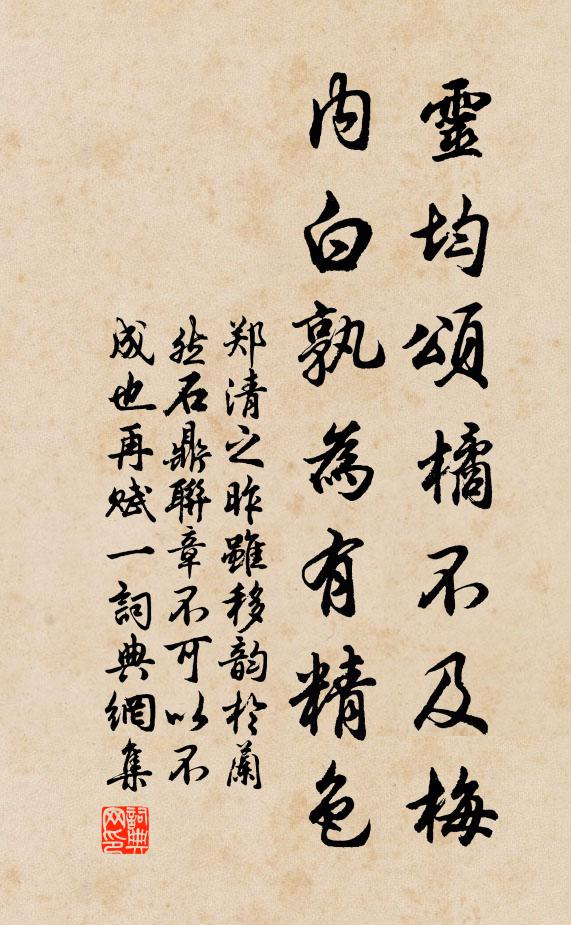 靈均頌橘不及梅
内白孰為有精色
郑清之昨雖移韵於蘭
然石鼎聯章不可以不
成也再赋一詞典網集
詞典
网印